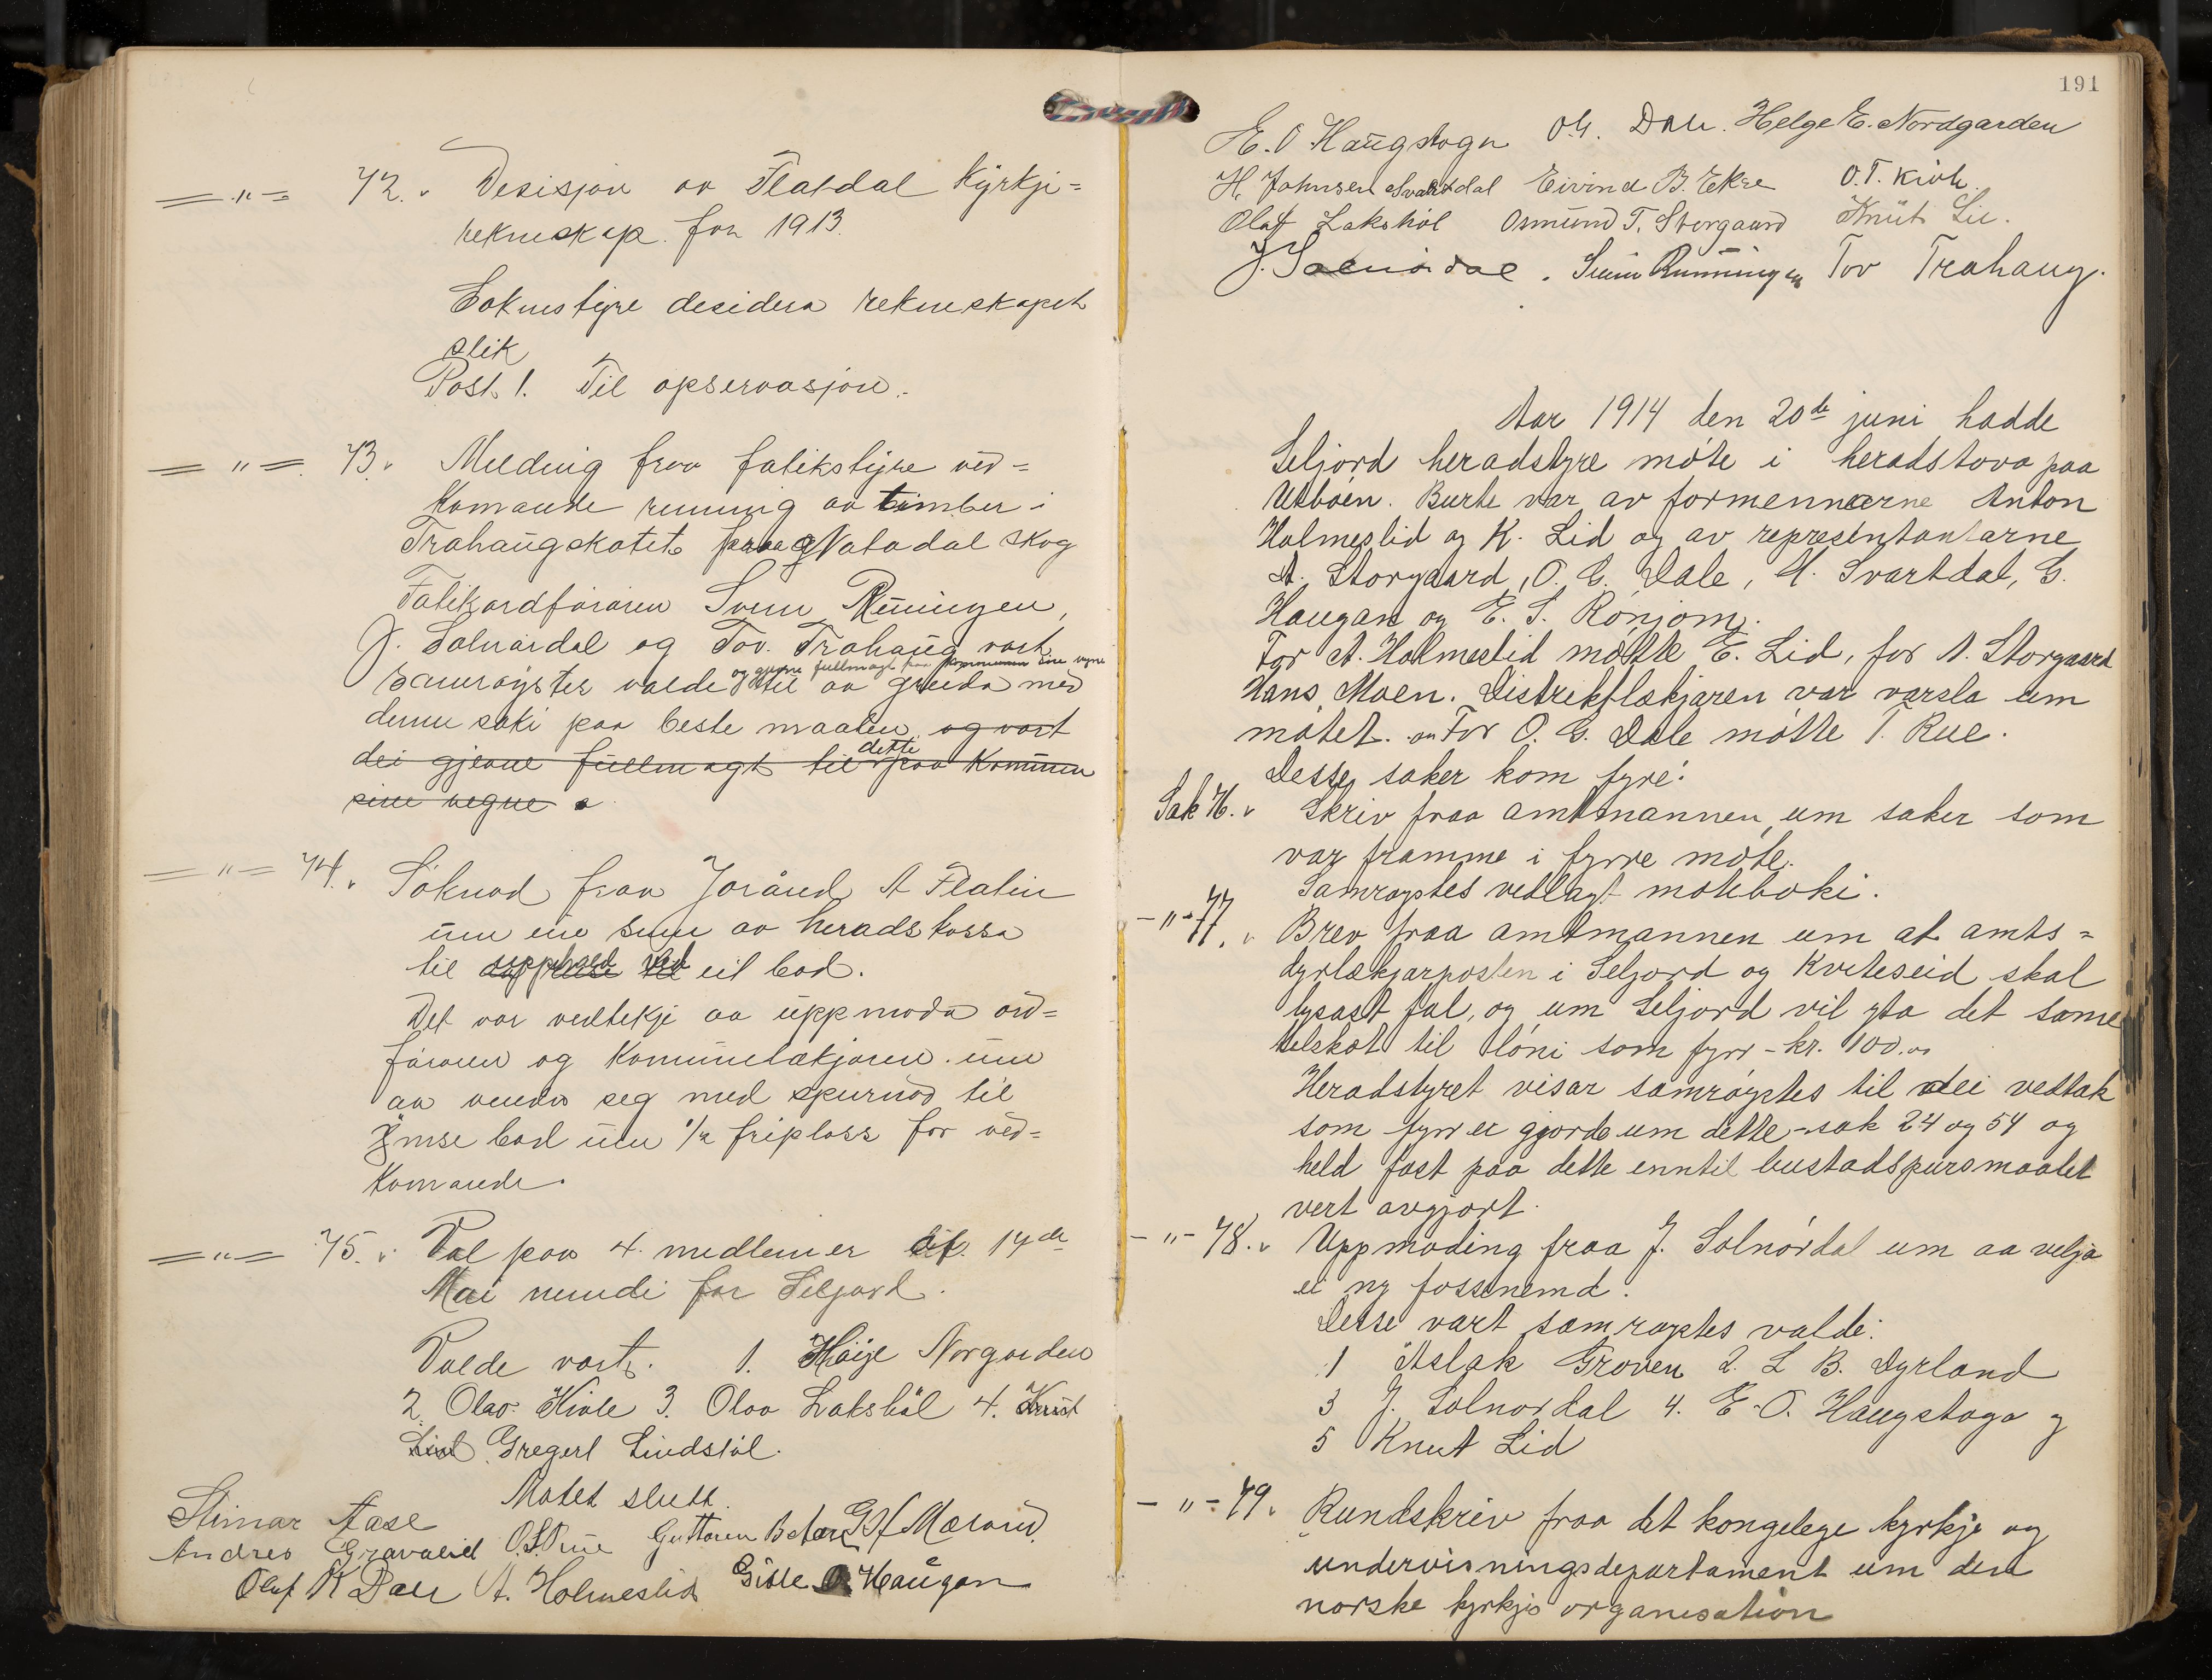 =„= 72. Desisjon av Flatdal Kyrkje=
rekneskap for 1913.
Soknestyre desidera rekneskapet
slik
Post 1. Til opservasjon.
=„= 73. Melding fraa fatikstyre ved=
komande renning av timber i
Trahaugskotet Natadal skog
Fatikordføraren Svein Runingen,
J. Solnørdal og Tov. Trahaug vart
og gjevne fullmagt fraa kommunen sine vegne
samrøystes valde til aa greida med
denne saki paa beste maaten og vart
dei gjevne fullmagt til dette paa Kommun
sine vegne
=„= 74. Søknad fraa Joránd A Flatin
um ein sum av heradskassa
til upphald ved eit bad.
Det var vedtekje aa uppmoda ord=
føraren og Kommunelækjaren um
aa venda seg med spurnad til
ymse bad um 1/2 friplass for ved=
komande.
=„= 75. Val paa 4. medlemer af. 17de
Mai nemdi for Seljord.
Valde vart. 1. Høije Norgarden
2. Olav Kivle 3. Olav Lakshøl 4. Knut
Lid Gregert Lindstøl.
Møtet slutt.
Steinar Aase
Andres Gravalid Guttorm G H Mæland
Oluf K Dale A. Holmeslid Gisle O. Haugan
191
E. O Haugstoga O.G. Dale. Helge E. Nordgarden
H. Johnsen Svartdal Eivind B. Ekre O.T. Kivle
Olaf Lakshøl Osmund T. Storgaard Knut Lie.
J. Solnørdal. Svein Runningen Tov Trahaug.
Aar 1914 den 20de juni hadde
Seljord heradstyre møte i heradstova paa
Utbøen. Burte var av formennarne Anton
Holmeslid og K. Lid og av representantarne
A. Storgaard, O. G. Dale, H. Svartdal, G.
Haugan og E. S. Rønjom.
For A. Holmeslid møtte E. Lid, for A. Storgaard
Hans Moen. Distriktlækjaren var varsla um
møtet. For O. G. Dale møtte T. Rue.
Desse saker kom fyre:
Sak 76. Skriv fraa amtmannen, um saker som
var framme i fyrre møte.
Samrøystes vedlagt møteboki.
-„- 77. Brev fraa amtmannen um at amts=
dyrlækjarposten i Seljord og Kviteseid skal
lysast fal, og um Seljord vil yta det same
tilskot til løni som fyrr - kr. 100.00
Heradstyret visar samrøystes til dei vedtak
som fyrr er gjorde um dette - sak 24 og 54 og
held fast paa dette enntil bustadspursmaalet
vert avgjort.
-„- 78. Uppmoding fraa J. Solnørdal um aa velja
ei ny fossenemd.
Desse vart samrøystes valde:
1 Aslak Groven 2. L B. Dyrland
3 J. Solnørdal 4. E. O. Haugstoga og
5 Knut Lid
-„- 79. Rundskriv fraa det kongelege kyrkje og
undervisningsdepartament um den
norske kyrkjes organisation